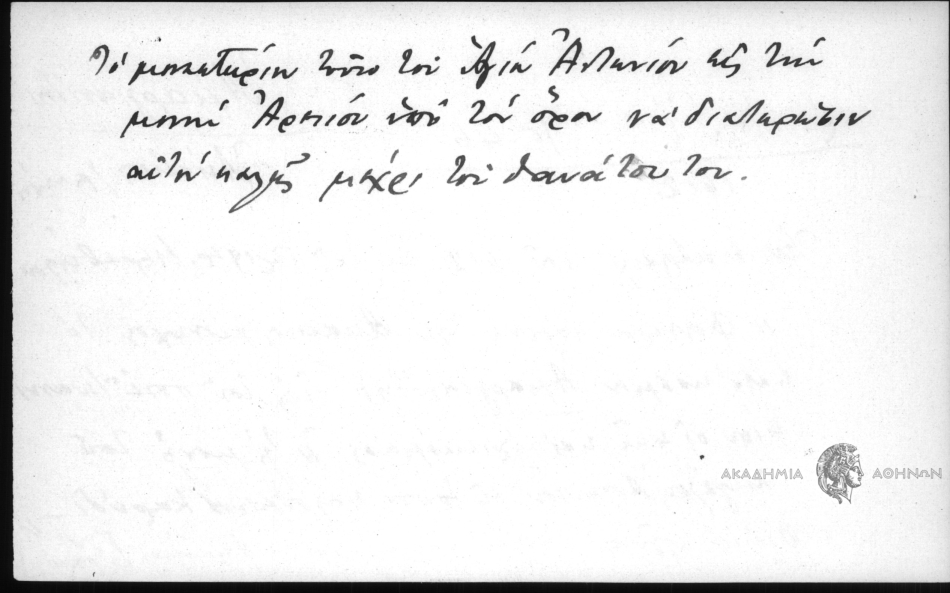 τό μοναστήριν τοῦτο τοῦ Ἁγίου Ἀντωνίου εἰς τήν
μονήν Ἀρσενίου ὑπό τόν ὅρον νά διατηρῶσιν
αὐτόν καλῶς μέχρι τοῦ θανάτου του.
ΑΚΑΔΗΜΙΑ ΑΘΗΝΩΝ